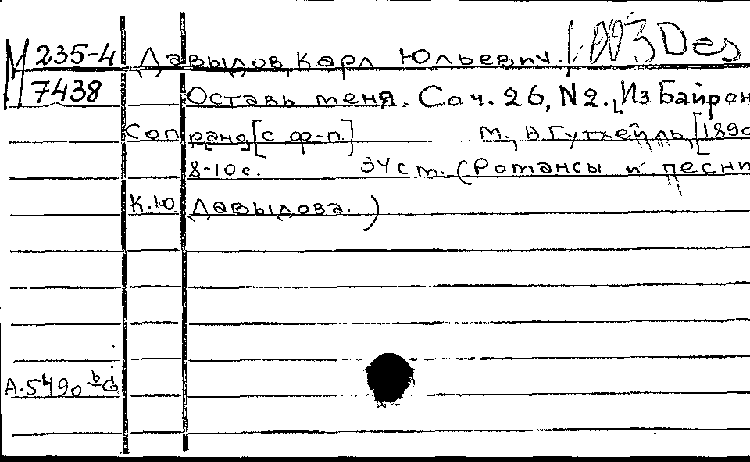 М 235-4 Давыдов, Карл Юльевич.
7438 Оставь меня. Соч. 26, N2. [Из Байрон
Сопрано [с ф-п.] М., А. Гутхейль, [189
8-10 с. 34 см. (Романсы и песни
К.Ю. Давыдова.)
А.5490